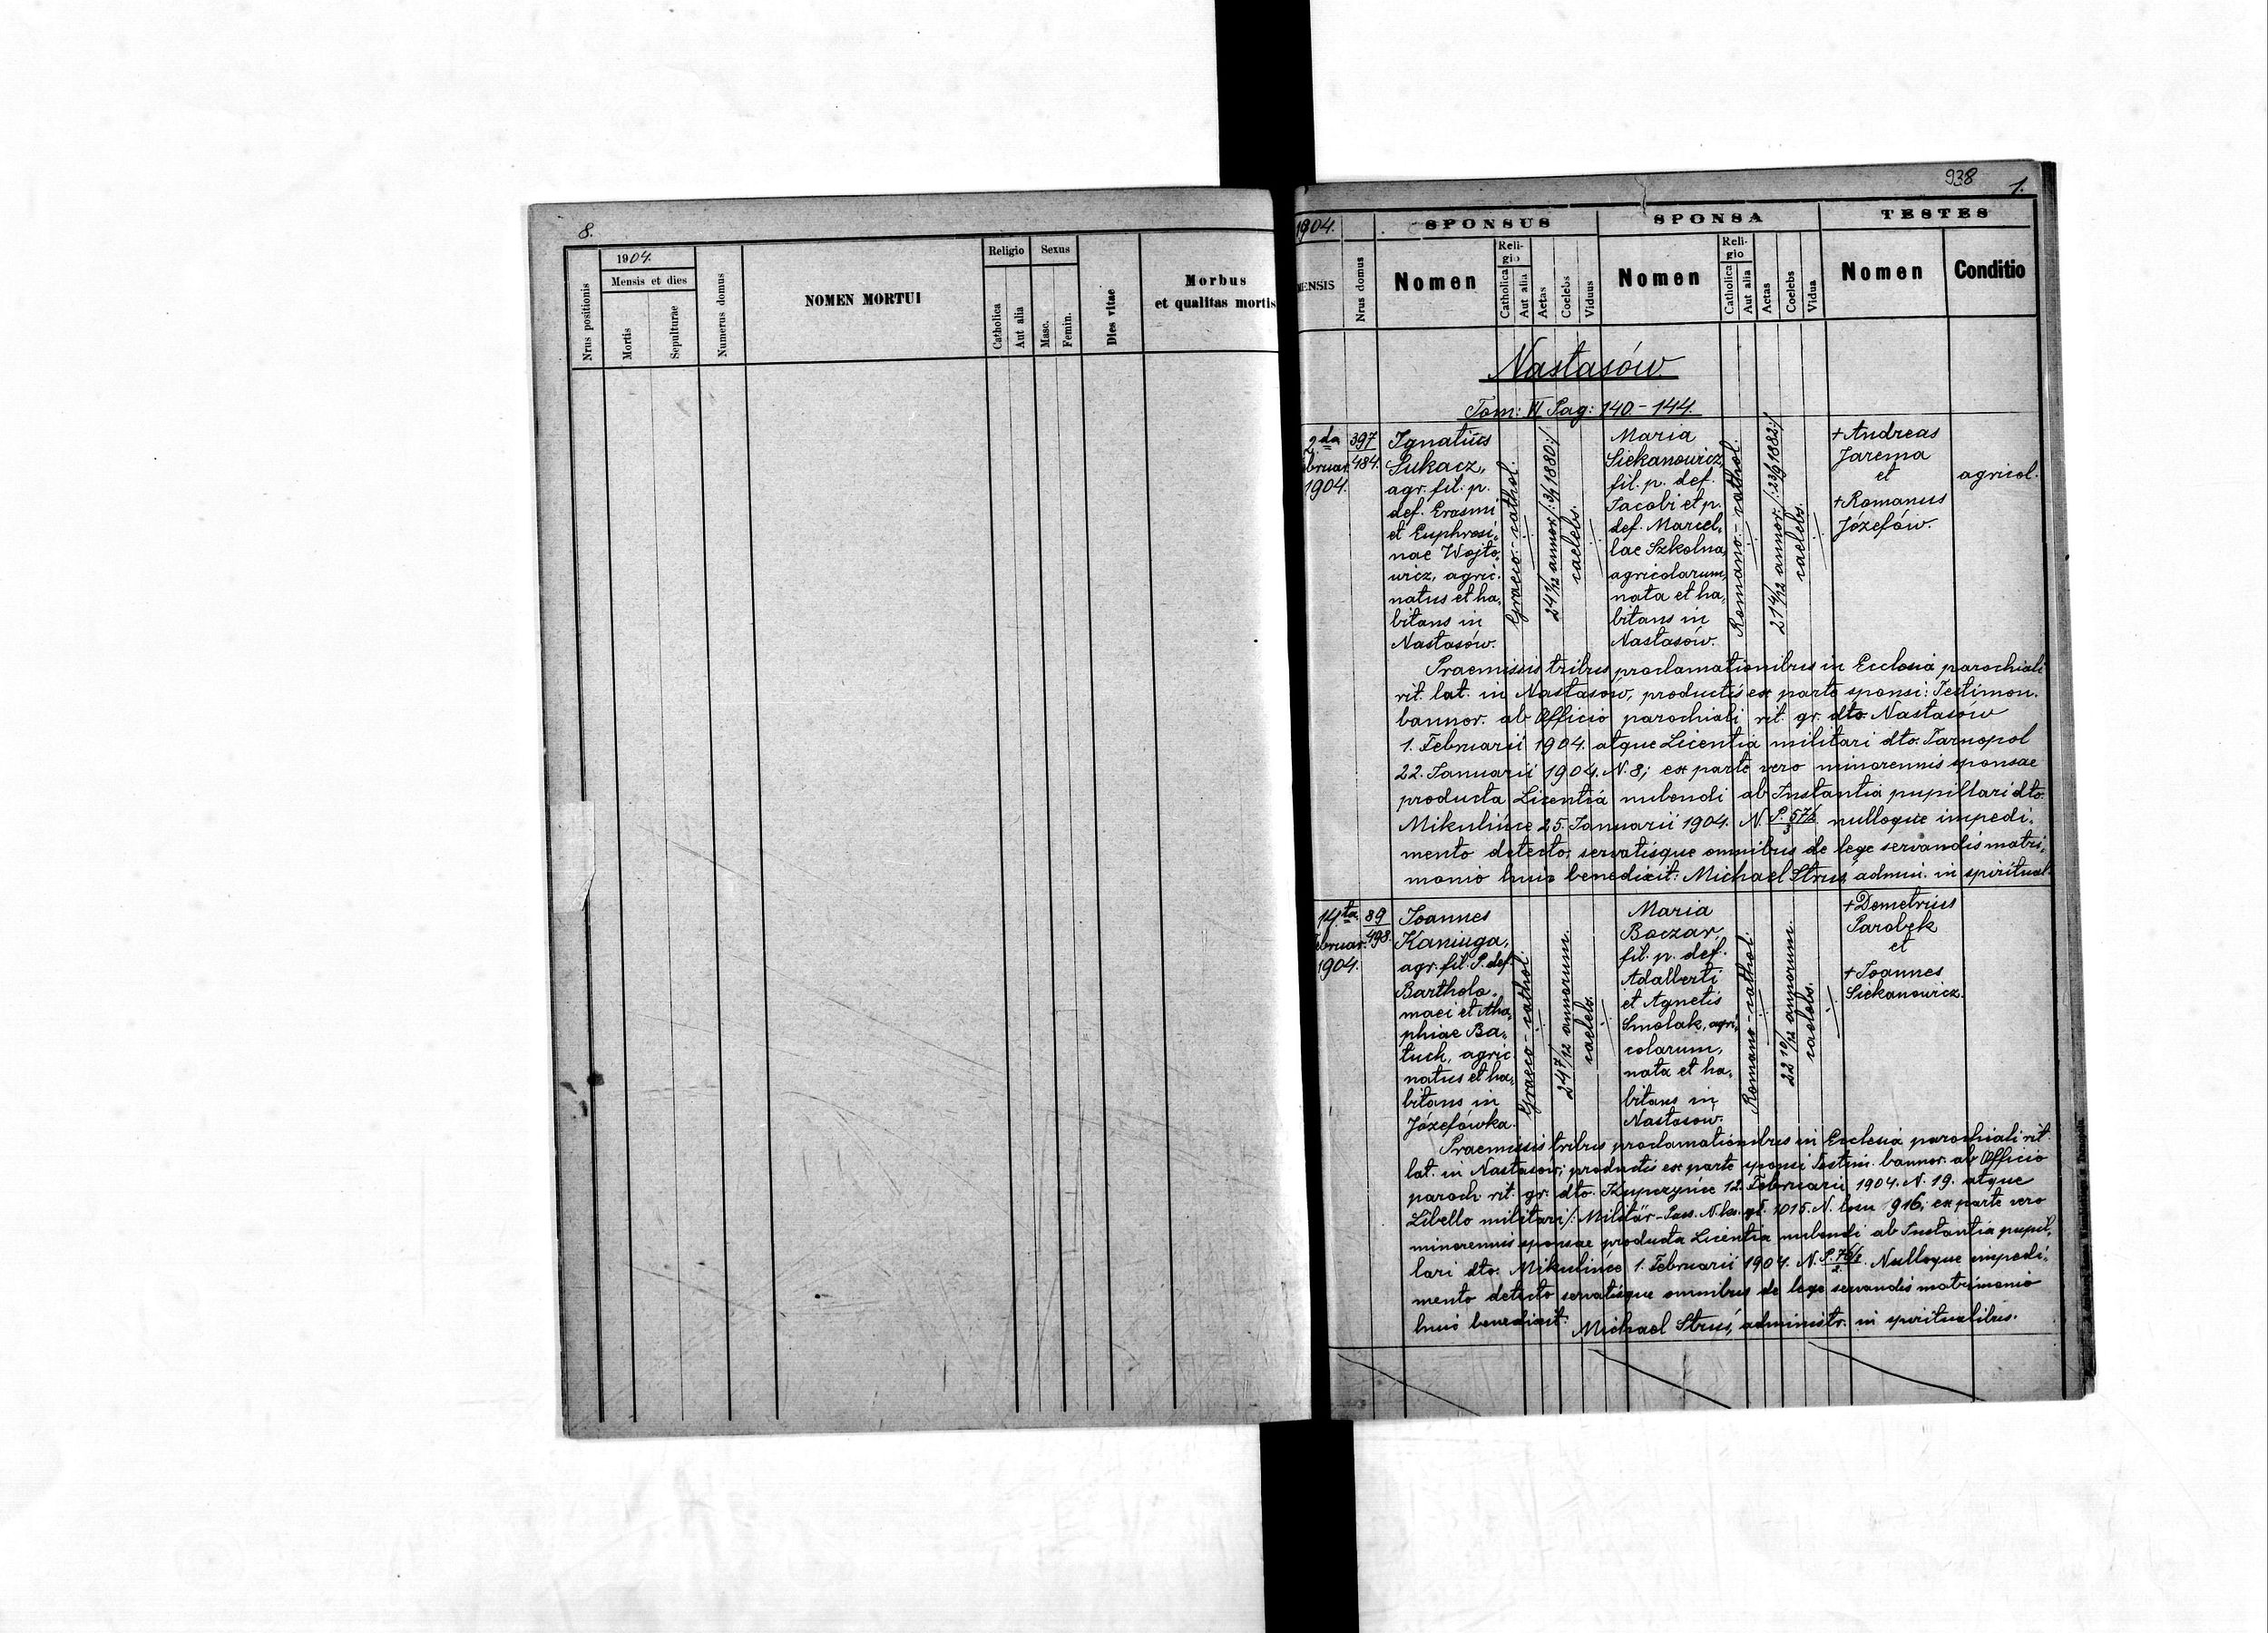 8.
1904.
Nrus positionis
Mensis et dies
Mortis
Sepulturae
Numerus domus
NOMEN MORTUI
Religio
Catholica
Aut alia
Sexus
Masc.
Femin.
Dies vitae
Morbus
et qualitas mortis
938
1.
1904.
MENSIS
Nrus domus
SPONSUS
Nomen
Reli-
gio
Catholica
Aut alia
Aetas
Coelebs
Viduus
SPONSA
Nomen
Reli-
gio
Catholica
Aut alia
Aetas
Coelebs
Vidua
TESTES
Nomen
Conditio
Nastasów.
Tom: VI Pag: 140 - 144.
2da
bruar.
1904.
397
484.
Ignatius
Łukacz,
agr. fil. p.
def. Erasmi
et Euphrosi,
nae Wojto,
wicz, agric.
natus et ha,
bitans in
Nastasów.
Graeco-cathol.
24 1/12 annor /:3/1 1880:/
caelebs.
Maria
Siekanowicz,
fil. p. def.
Jacobi et p.
def. Marcel,
lae Szkolna,
agricolarum,
nata et ha,
bitans in
Nastasów.
Romano-cathol.
21 4/12 annor. /:23/9 1882:/
caelebs.
+Andreas
Jarema
et
+Romanus
Józefów.
agricol.
Praemissis tribus proclamationibus in Ecclesia parochiali
rit. lat. in Nastasów, productis ex parte sponsi: Testimon.
bannor. ab Officio parochiali rit. gr. dto. Nastasów
1. Februarii 1904. atque Licentia militari dto. Tarnopol
22. Januarii 1904. N. 8; ex parte vero minorennis sponsae
producta Licentia nubendi ab Instantia pupillari dto.
Mikulińce 25. Januarii 1904. N. nulloque impedi,
mento detecto, servatisque omnibus de lege servandis matri,
monio huic benedixit: Michael Struś, admin. in spiritual.
14.ta
ebruar.
1904.
89
498.
Joannes
Kaniuga,
agr. fil. P. def.
Bartholo,
maei et Aha,
phiae Ba,
tuch, agric.
natus et ha,
bitans in
Józefówka.
Graeco-cathol.
24 7/12 annorum.
caelebs.
Maria
Boczar,
fil. p. def.
Adalberti
et Agnetis
Smolak, agri,
colarum,
nata et ha,
bitans in
Nastasów.
Romano-cathol.
22 10/12 annorum.
caelebs.
+Demetrius
Parobek
et
+Joannes
Siekanowicz.
Praemissis tribus proclamationibus in Ecclesia parochiali rit.
lat. in Nastasów; productis ex parte sponsi Testim. bannor. ab Officio
paroch. rit. gr. dto. Kupczyńce 12. Februarii 1904. N. 19. atque
Libello militari /: Militär-Pass. 1015. N. losu 916; ex parte vero
minorennis sponsae producta Licentia nubendi ab Instantia pupil,
lari dto. Mikulińce 1. Februarii 1904. N. Nulloque impedi,
mento detecto servatisque omnibus de lege servandis matrimonio
huic benedixit: Michael Struś, administr. in spiritualibus.